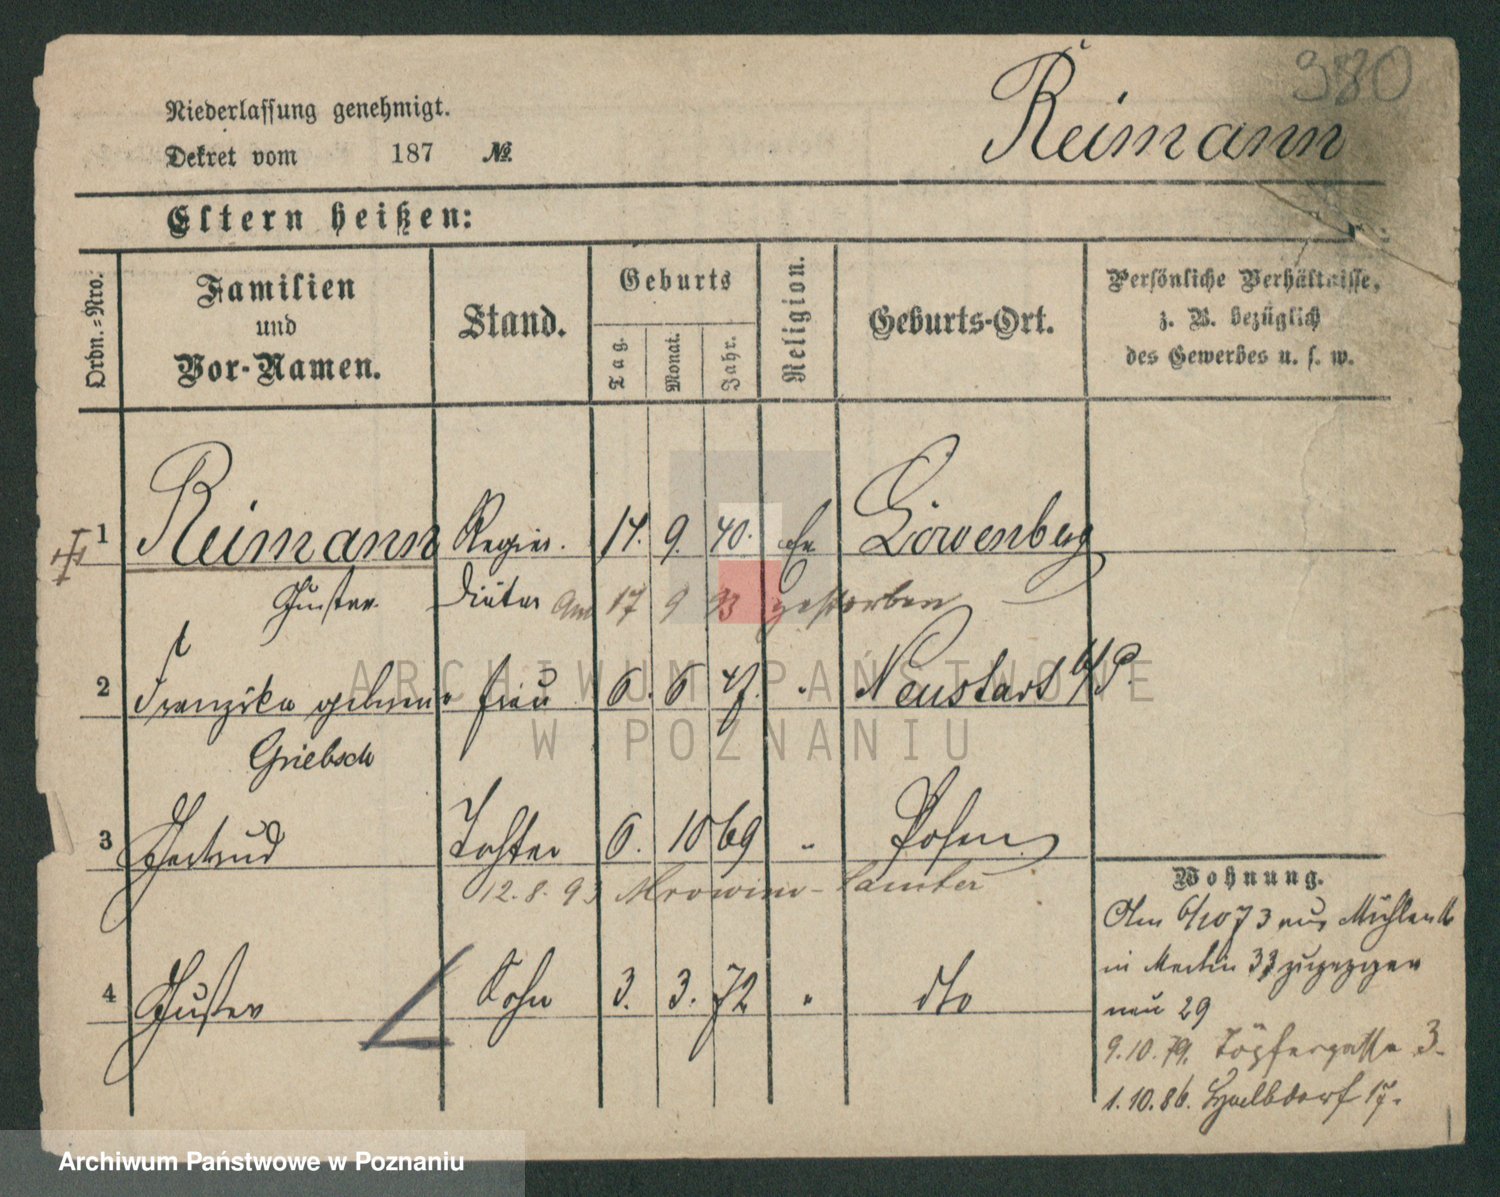 380
Reimann
Niederlassung genehmigt.
Dekret vom 187 №.
Eltern heißen:
Ordn.-Nro.
Familien
und
Vor-Namen.
Stand.
Geburts
Tag.
Monat.
Jahr.
Religion.
Geburts-Ort.
Persönliche Verhältnisse,
z. B. bezüglich
des Gewerbes u. s. w.
1 Reimann Regier. 14. 9. 40. Löwenberg
Gustav Diätar am 17 9 93 gestorben
2 Franziska geborne Frau 6. 6 47. " Neustadt b/P.
Griebsch
3 Gertrud Tochter 6. 10 69 " Posen
12.8.93
4 Gustav Sohn 3. 3. 72 " dto
Wohnung.
Am 6/10 73 aus Mühlen
in Martin 33 zugezogen
neu 29
9.10.79. Töpfergasse 3.
1.10.86. Halbdorf 17.
ARCHIWUM PAŃSTWOWE
W POZNANIU
Archiwum Państwowe w Poznaniu